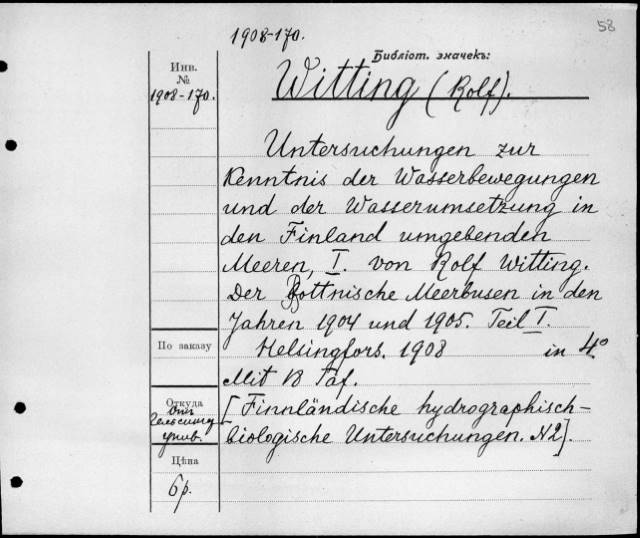 58
1908-170.
Библіот. значекъ:
Инв.
№
1908-170.
Witting (Rolf).
Untersuchungen zur
Kenntnis der Wasserbewegungen
und der Wasserumsetzung in
den Finland umgebenden
Meeren, I. von Rolf Witting.
Der Bottnische Meerbusen in den
Jahren 1904 und 1905. Teil I.
По заказу
Helsingfors. 1908 in 4°
Mit 13 Taf.
Откуда
Гельсингф.
унив.
[Finnländische hydrographisch-
biologische Untersuchungen. N2].
Цѣна
бр.